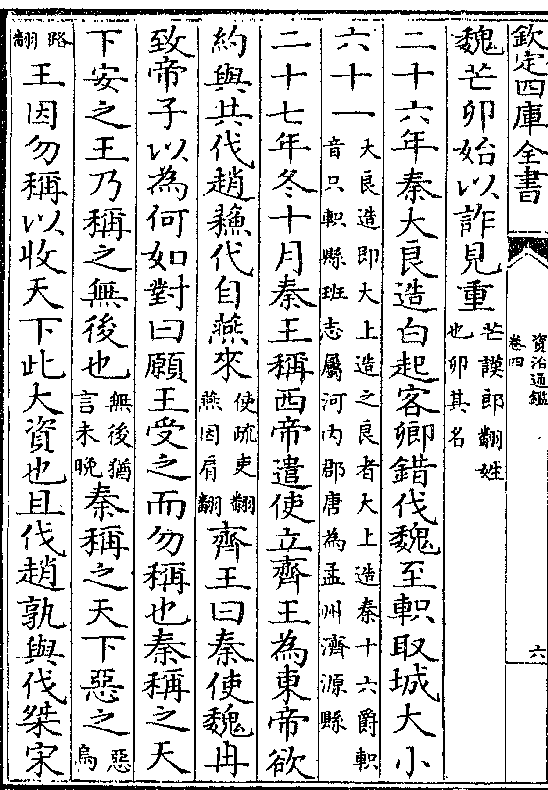 欽定四庫全書
資治通鑑
卷四
六
魏芒卯始以詐見重芒謨郎翻姓
也卯其名
二十六年秦大良造白起客卿錯伐魏至軹取城大小
六十一大良造即大上造之良者大上造秦十六爵軹
音只軹縣班志屬河內郡唐為孟州濟源縣
二十七年冬十月秦王稱西帝遣使立齊王為東帝欲
約與共伐趙蘇代自燕來使疏吏翻
燕因肩翻齊王曰秦使魏冉
致帝子以為何如對曰願王受之而勿稱也秦稱之天
下安之王乃稱之無後也無後猶
言未晚秦稱之天下惡之惡烏
路翻王因勿稱以收天下此大資也且伐趙孰與伐桀宋